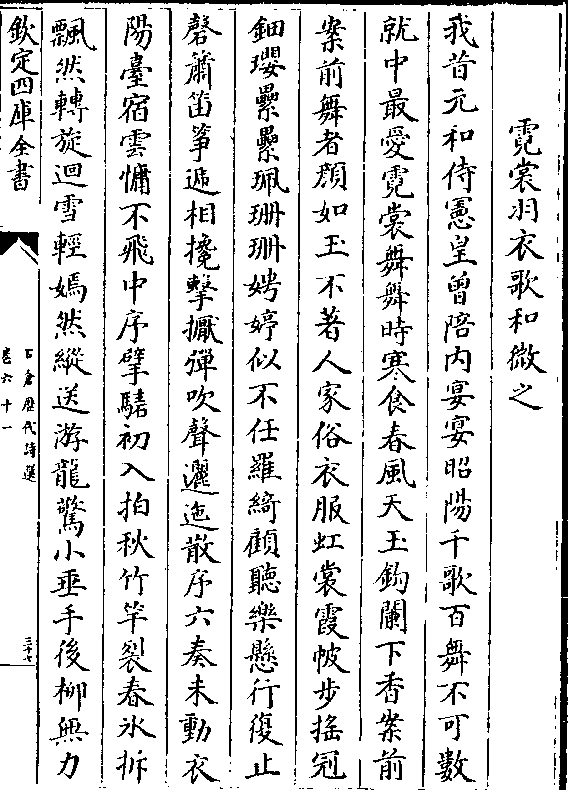 霓裳羽衣歌和微之
我昔元和侍憲皇曾陪内宴宴昭陽千歌百舞不可數
就中最愛霓裳舞舞時寒食春風天玉鈎闌下香案前
案前舞者顔如玉不著人家俗衣服虹裳霞帔步摇冠
鈿瓔纍纍珮珊珊娉婷似不任羅綺顧聽樂懸行復止
磬簫笛筝遞相攙擊擫彈吹聲邐迤散序六奏未動衣
陽臺宿雲慵不飛中序擘騞初入拍秋竹竿裂春氷拆
飄然轉旋迴雪輕嫣然縱送游龍驚小垂手後柳無力
欽定四庫全書
石倉歷代詩選
卷六十一
三十七